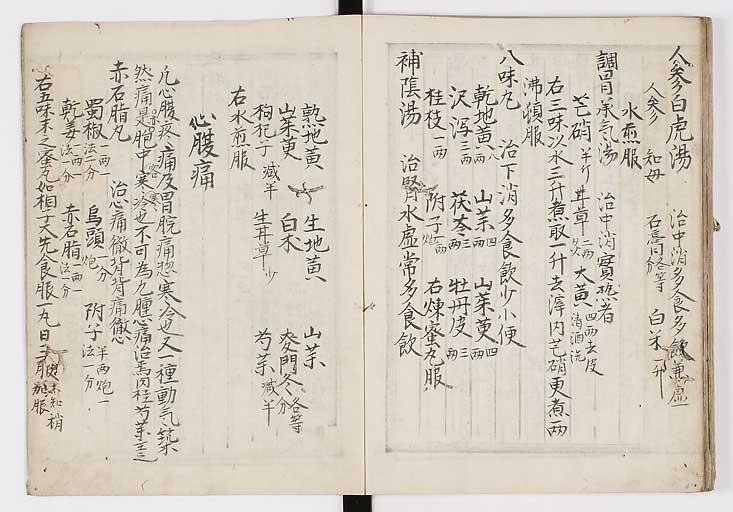 人參白虎湯 治中消多食多飮兼虛
人參 知母 石膏 各等分 白米 一升
水煎服
調胃承氣湯 治中消實熱者
芒硝 半斤 甘草 二兩 炙 大黃 四兩去皮 淸酒洗
右三味以水三升煮取一升去滓內芒硝更煮兩
沸頓服
八味丸 治下消多食飮少小便
乾地黃 八兩 山茱 四兩 山茱萸 四兩
沢泻 三兩 茯苓 三兩 牡丹皮 三兩
桂枝 一兩 附子 炮一兩 右煉蜜丸服
補陰湯 治腎水虛常多食飮
熟地黃 生地黃 山茱
山茱萸 白朮 麥門冬 各等分
枸杞子 減半 生甘草 少 芍薬 減半
右水煎服
心腹痛
凡心腹疼痛及胃脘痛惣寒冷也又一種動氣築
然痛是胞中寒冷也不可為九種心痛治焉肉桂芍薬主之
赤石脂丸 治心痛徹背背痛徹心
蜀椒 一兩 法二分 烏頭 一分 炮 附子 半兩炮 法一分
乾姜 一兩 法一分 赤石脂 一兩 法一分
右五味末之蜜丸如梧子大先食服一丸日三服 不知稍加服